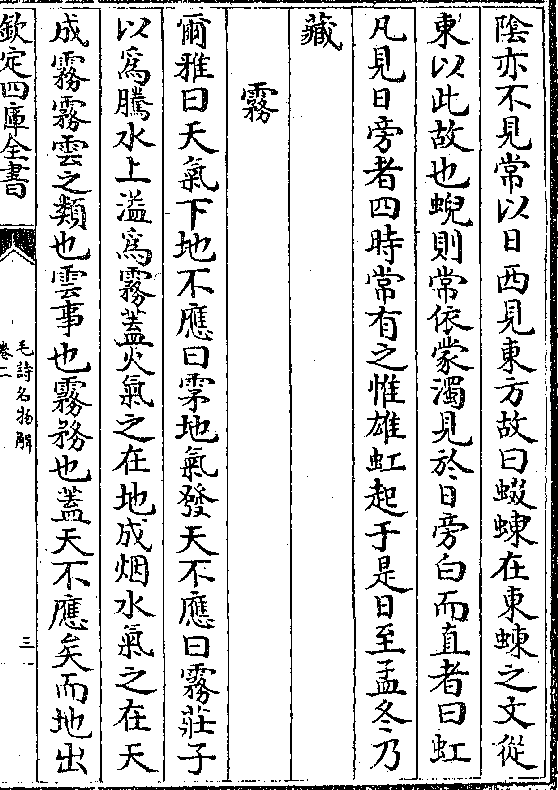 陰亦不見常以日西見東方故曰蝃蝀在東蝀之文從
東以此故也蜺則常依蒙濁見於日旁白而直者曰虹
凡見日旁者四時常有之惟雄虹起于是日至孟冬乃
藏
霧
爾雅曰天氣下地不應曰雺地氣發天不應曰霧莊子
以為騰水上溢為霧蓋火氣之在地成烟水氣之在天
成霧霧雲之類也雲事也霧務也蓋天不應矣而地出
欽定四庫全書
毛詩名物解
卷二
三